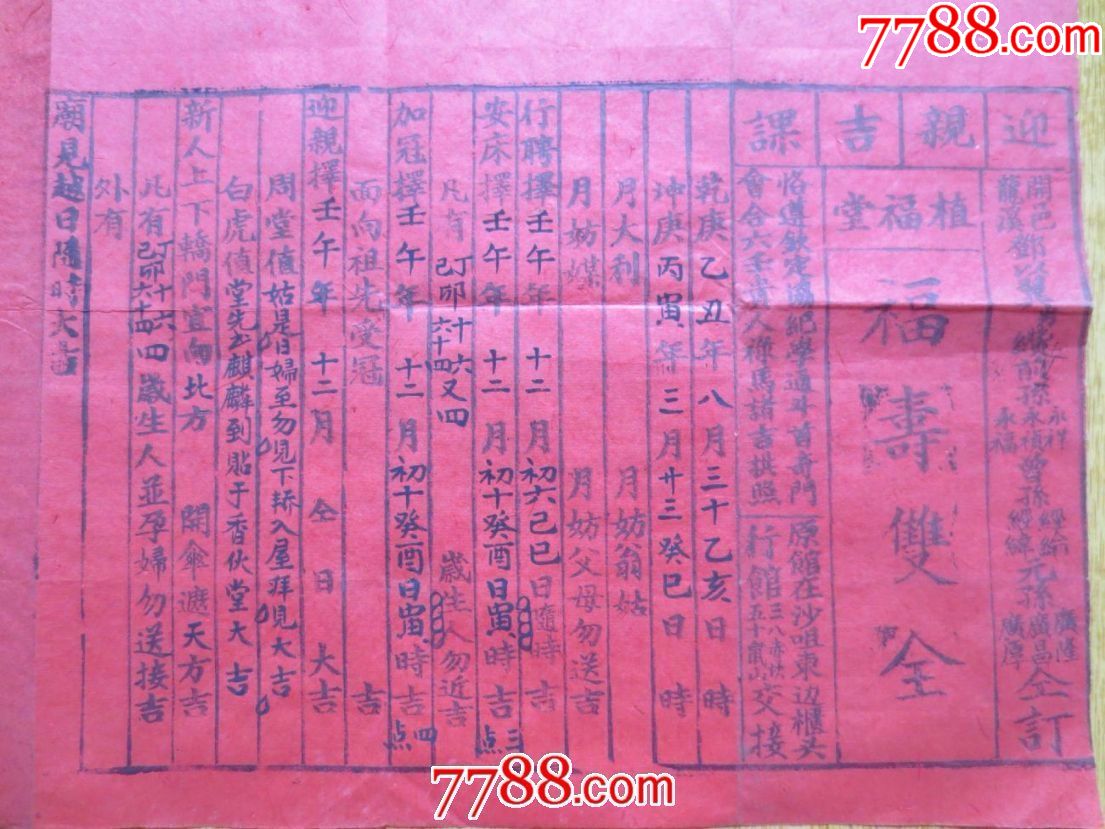 7788.com
迎親吉課
開邑龍溪鄧 孫永祥永禎永福曾孫經綸經緯元孫廣隆廣昌廣厚仝訂
植福堂
福壽雙全
恪遵欽定協紀學通斗首奇門
會合六壬貴人祿馬諸吉拱照
原館在沙咀東边櫃头
行館三八赤坎五十 交接
乾庚乙丑年八月三十乙亥日 時
坤庚丙寅年三月廿三癸巳日 時
月大利 月妨翁姑
月妨媒 月妨父母勿送吉
行聘擇壬午年十二月初六己巳日隨時吉
安床擇壬午年十二月初十癸酉日寅時吉三点
凡有丁卯己卯十六六十四又四歲生人勿近吉
加冠擇壬午年十二月初十癸酉日寅時吉四点
面向祖先受冠 吉
迎親擇壬午年十二月仝日大吉
周堂值姑是日婦至勿見下轿入屋拜見大吉
白虎值堂先书麒麟到貼于香伙堂大吉
新人上下轎門宜向北方 開傘遮天方吉
此有丁卯己卯十六六十四四歲生人並孕婦勿送接吉
外有
廟見越日隨時大吉
7788.com